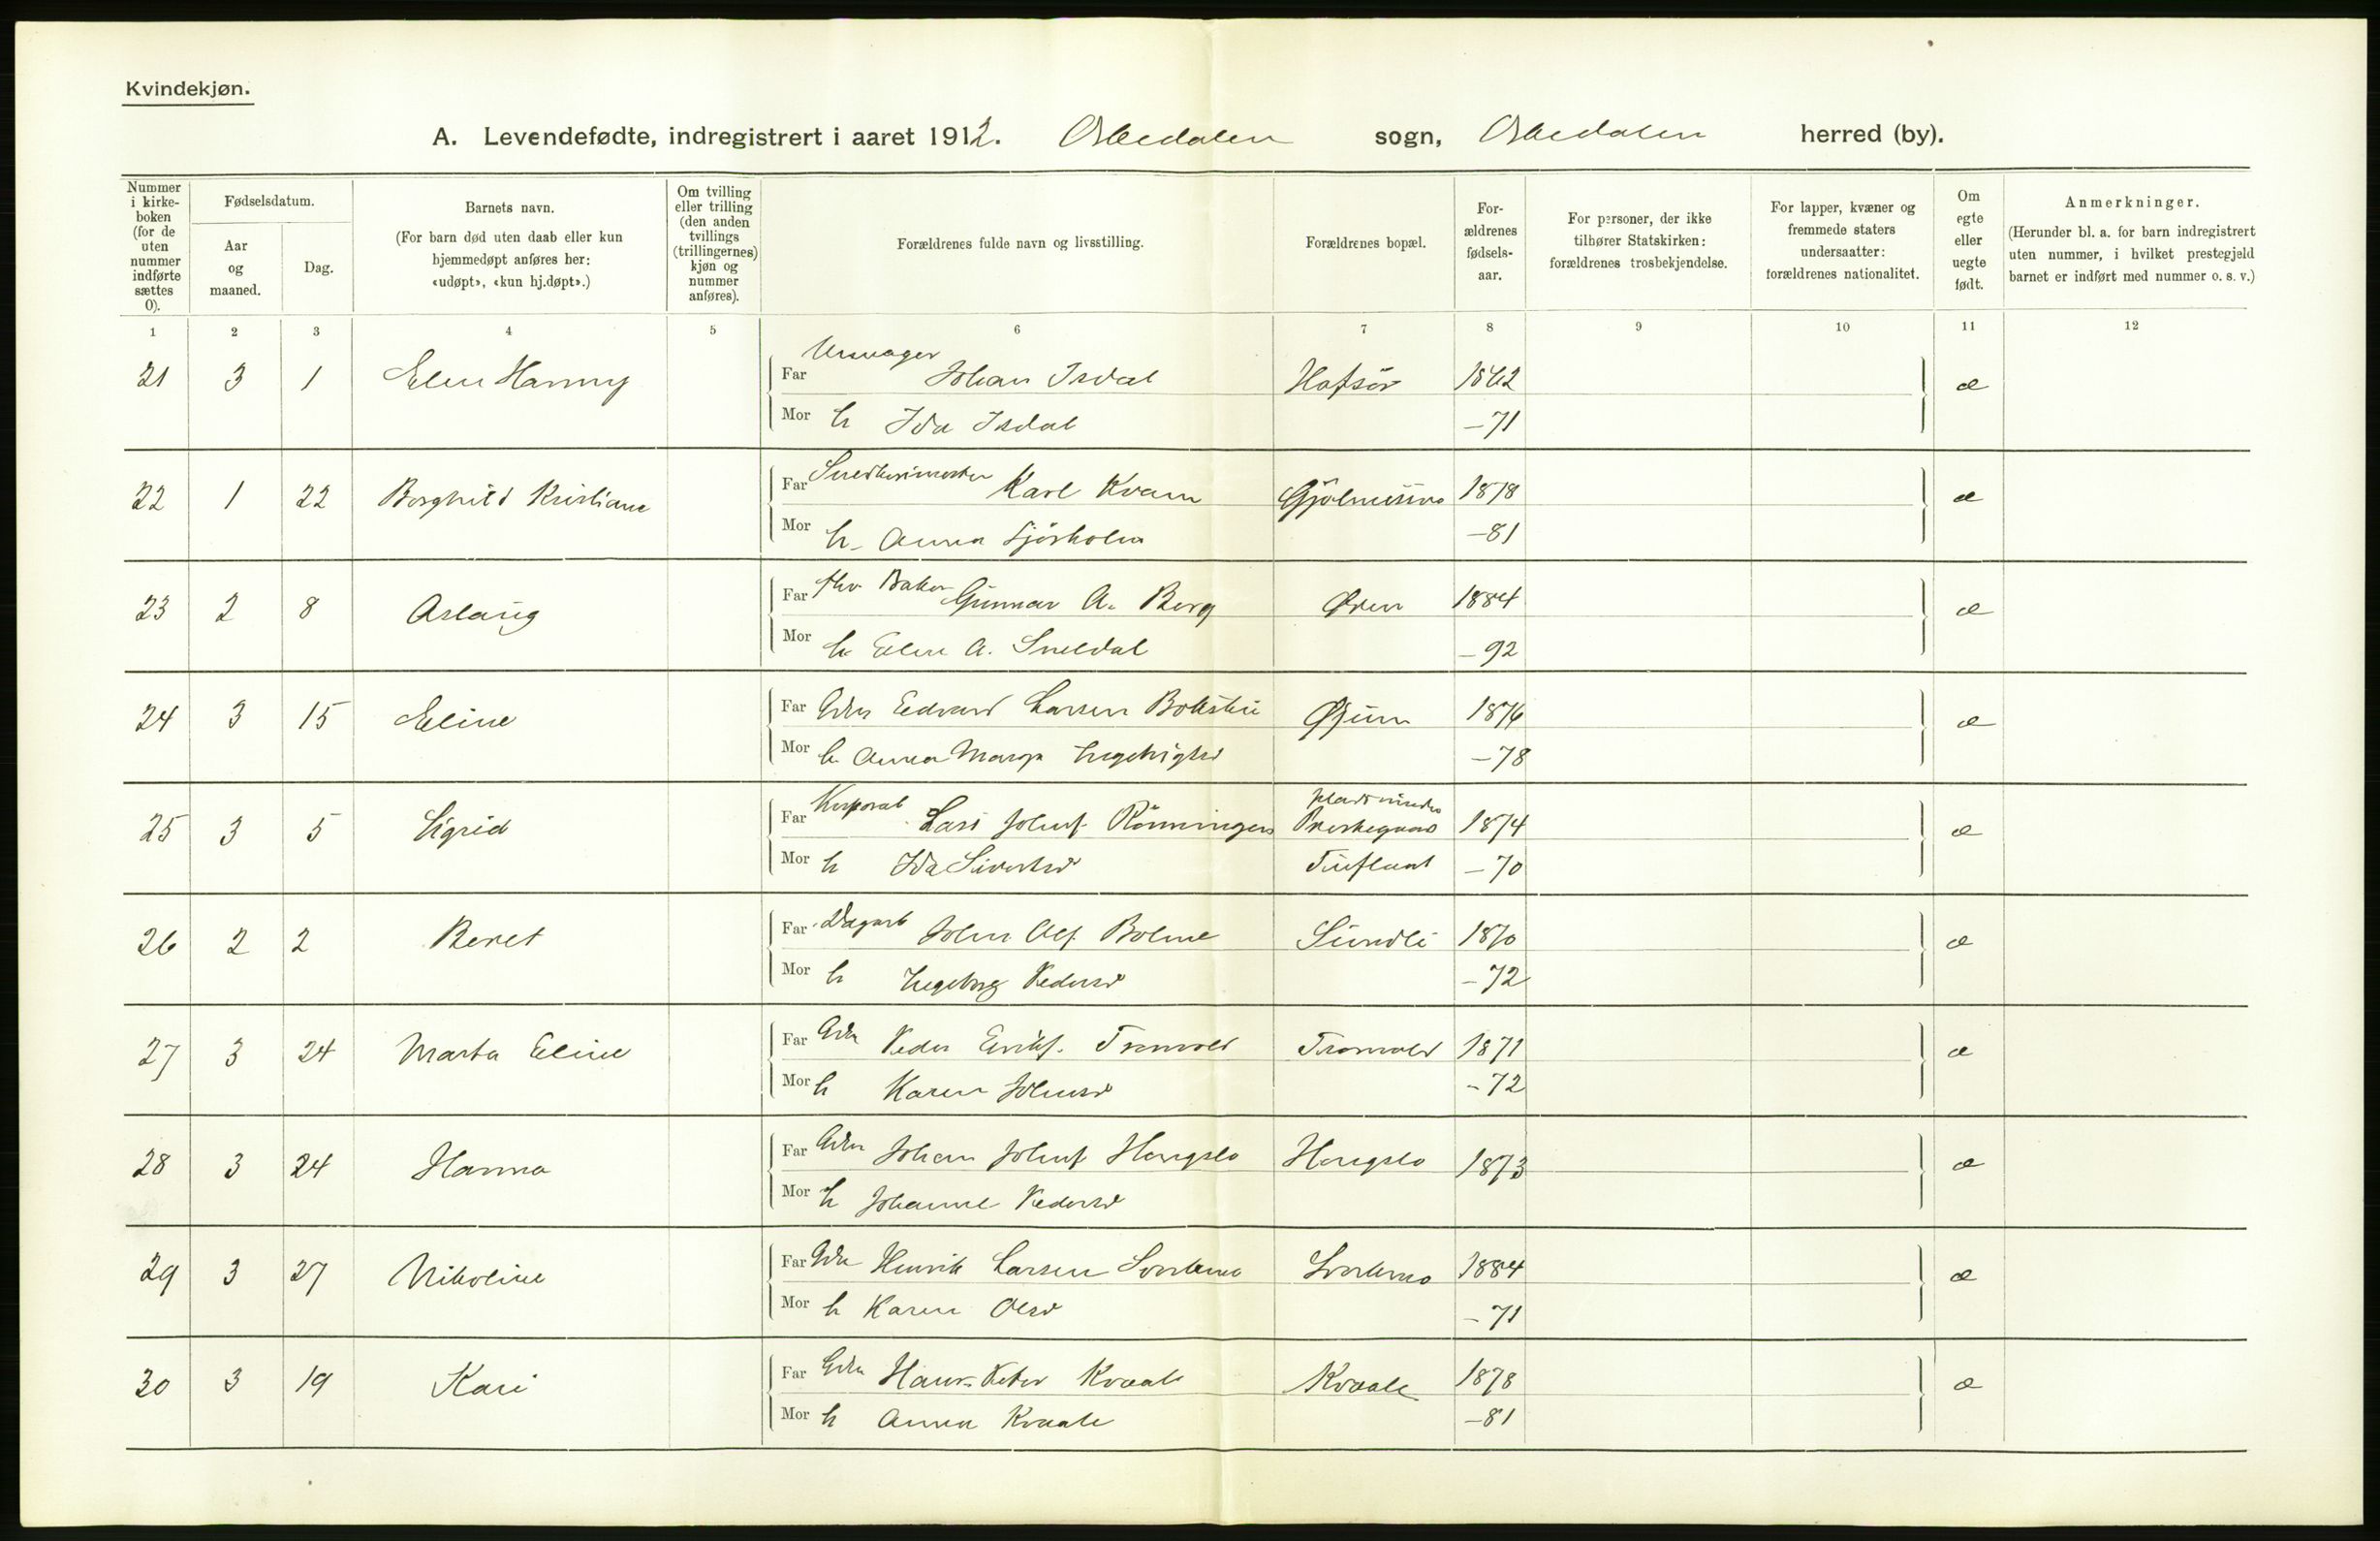 Kvindekjøn.
A. Levendefødte, indregistrert i aaret 1912. Orkedalen sogn, Orkedalen herred (by).
Nummer i kirke-boken (for de uten nummer indførte sættes 0).
Fødselsdatum.
Aar og maaned.
Dag.
Barnets navn.
(For barn død uten daab eller kun hjemmedøpt anføres her: «udøpt», «kun hj.døpt».)
Om tvilling eller trilling (den anden tvillings (trillingernes) kjøn og nummer anføres).
Forældrenes fulde navn og livsstilling.
Forældrenes bopæl.
For-ældrenes fødsels-aar.
For personer, der ikke tilhører Statskirken: forældrenes trosbekjendelse.
For lapper, kvæner og fremmede staters undersaatter: forældrenes nationalitet.
Om egte eller uegte født.
Anmerkninger.
(Herunder bl. a. for barn indregistrert uten nummer, i hvilket prestegjeld barnet er indført med nummer o. s. v.)
1 2 3 4 5 6 7 8 9 10 11 12
Urmager
21 3 1 Elen Hanny Far Johan Isdal 1862 æ
Mor h Ida Isdal —71
22 1 22 Borghild Kristiane Far Snedkermester Karl Kvam 1878 æ
Mor h. Anna Sjøsholm —81
23 2 8 Aslaug Far Baker Gunnar A. Berg Øren 1884 æ
Mor h Elen A. Sneldal —92
24 3 15 Eline Far Gdbr Edvard Larsen 1876 æ
Mor h Anna Marga —78
25 3 5 Sigrid Far Korporal Lars Johnf. Rönningen 1874 æ
Mor h Ida Sivertsd —70
26 2 2 Beret Far Dagarb John Olf. Bolme Sundli 1870 æ
Mor h Ingeborg Pedersd —72
27 3 24 Marta Eline Far Gdbr Peder Erikf. Tronvold Tronvold 1871 æ
Mor h Karen Johnsd —72
28 3 24 Hanna Far Gdbr Johan Johnf. Hongslo Hongslo 1873 æ
Mor h Johanne Pedersd
29 3 27 Nikoline Far Gdbr Henrik Larsen Svorkmo Svorkmo 1884 æ
Mor h Karen Olsd —71
30 3 19 Kari Far Gdbr Hans Peter Kvaale Kvaale 1878 æ
Mor h Anna Kvaale —81